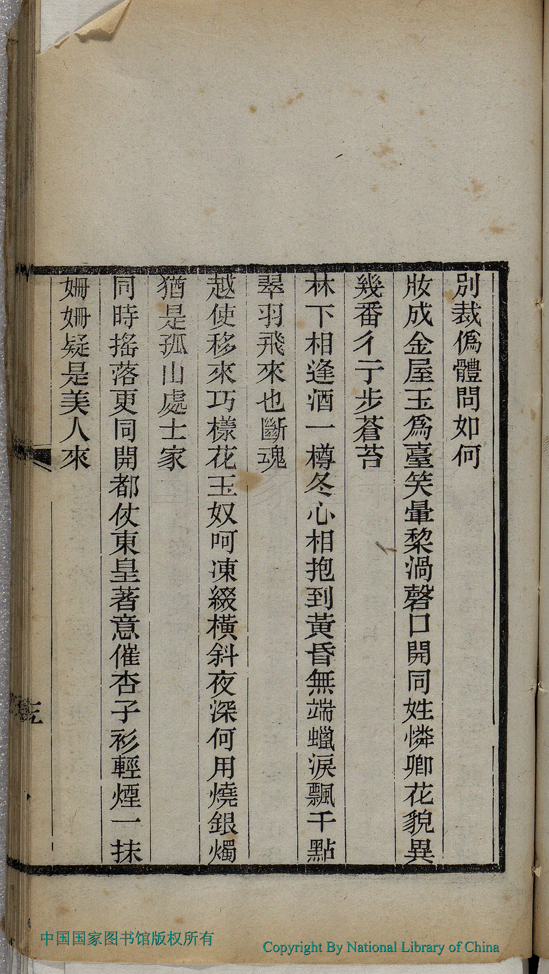 別裁僞體問如何
妝成金屋玉爲臺笑暈棃渦磬口開同姓憐卿花貌異
幾番彳亍步蒼苔
林下相逢酒一樽冬心相抱到黃昏無端蠟淚飄千點
翠羽飛來也斷魂
越使移來巧樣花玉奴呵凍綴橫斜夜深何用燒銀燭
猶是孤山處士家
同時搖落更同開都仗東皇著意催杏子衫輕煙一抹
姍姍疑是美人來
中国国家图书馆版权所有
Copyright By National Library of China